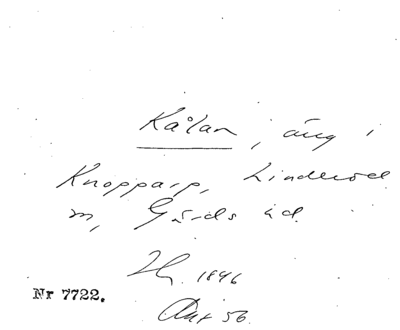 Kålan, äng i
Knopparp, Linderöd
m, Gärds hd.
1846
Nr 7722.
56.